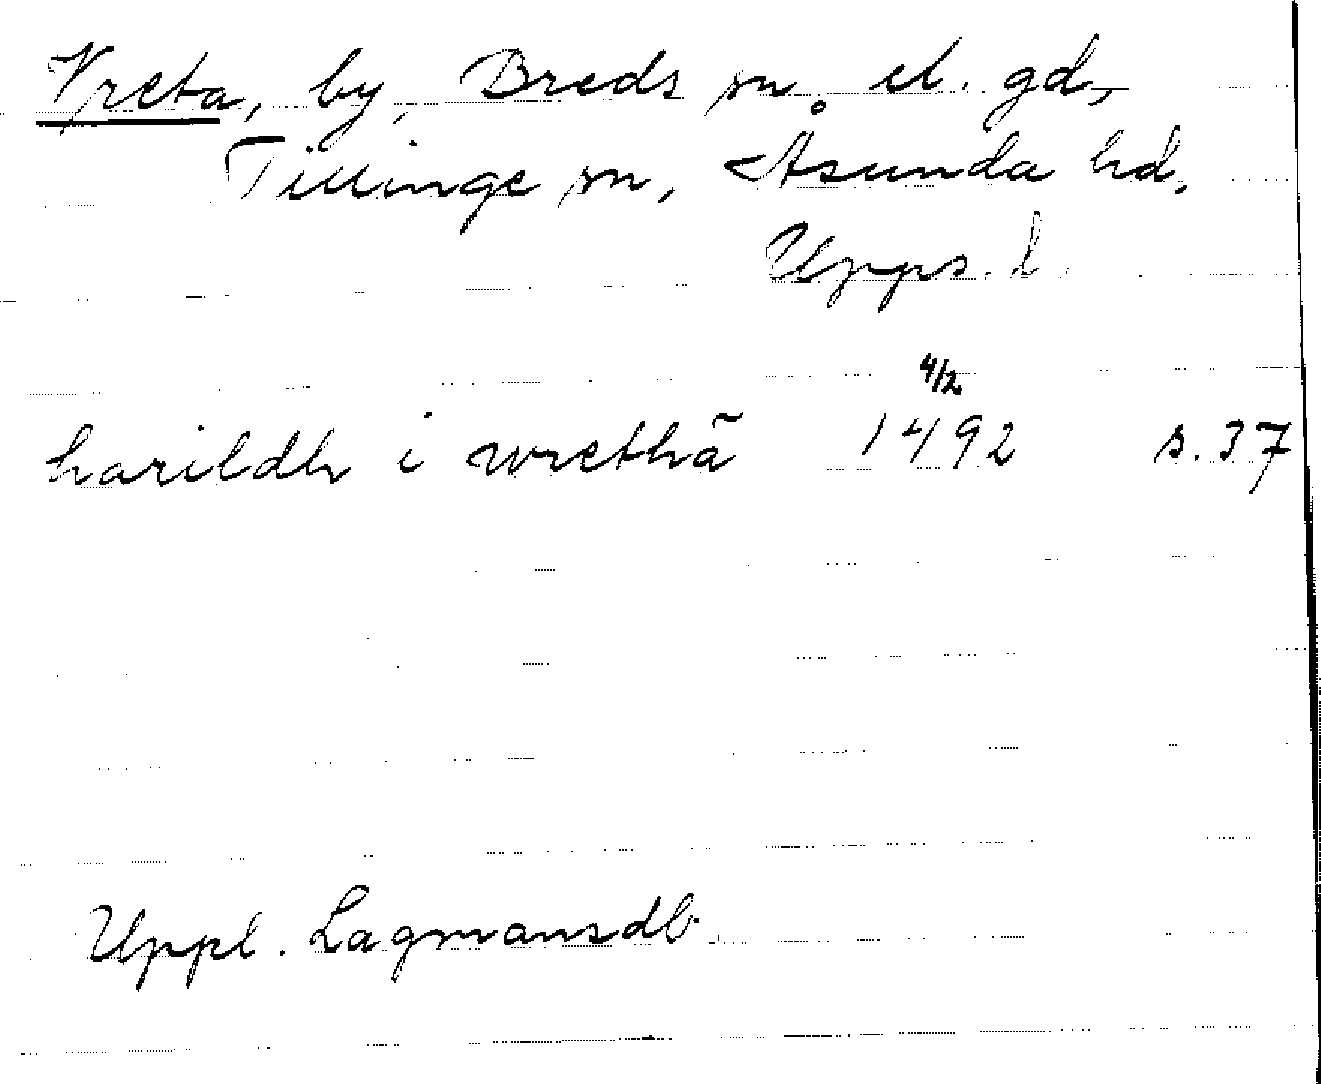 Vreta, by, Breds sn. el. gd,
Tillinge sn, Åsunda hd.
Upps. l.
4/2
harildh i wrethã 1492 s. 37
Uppl. Lagmansdb.